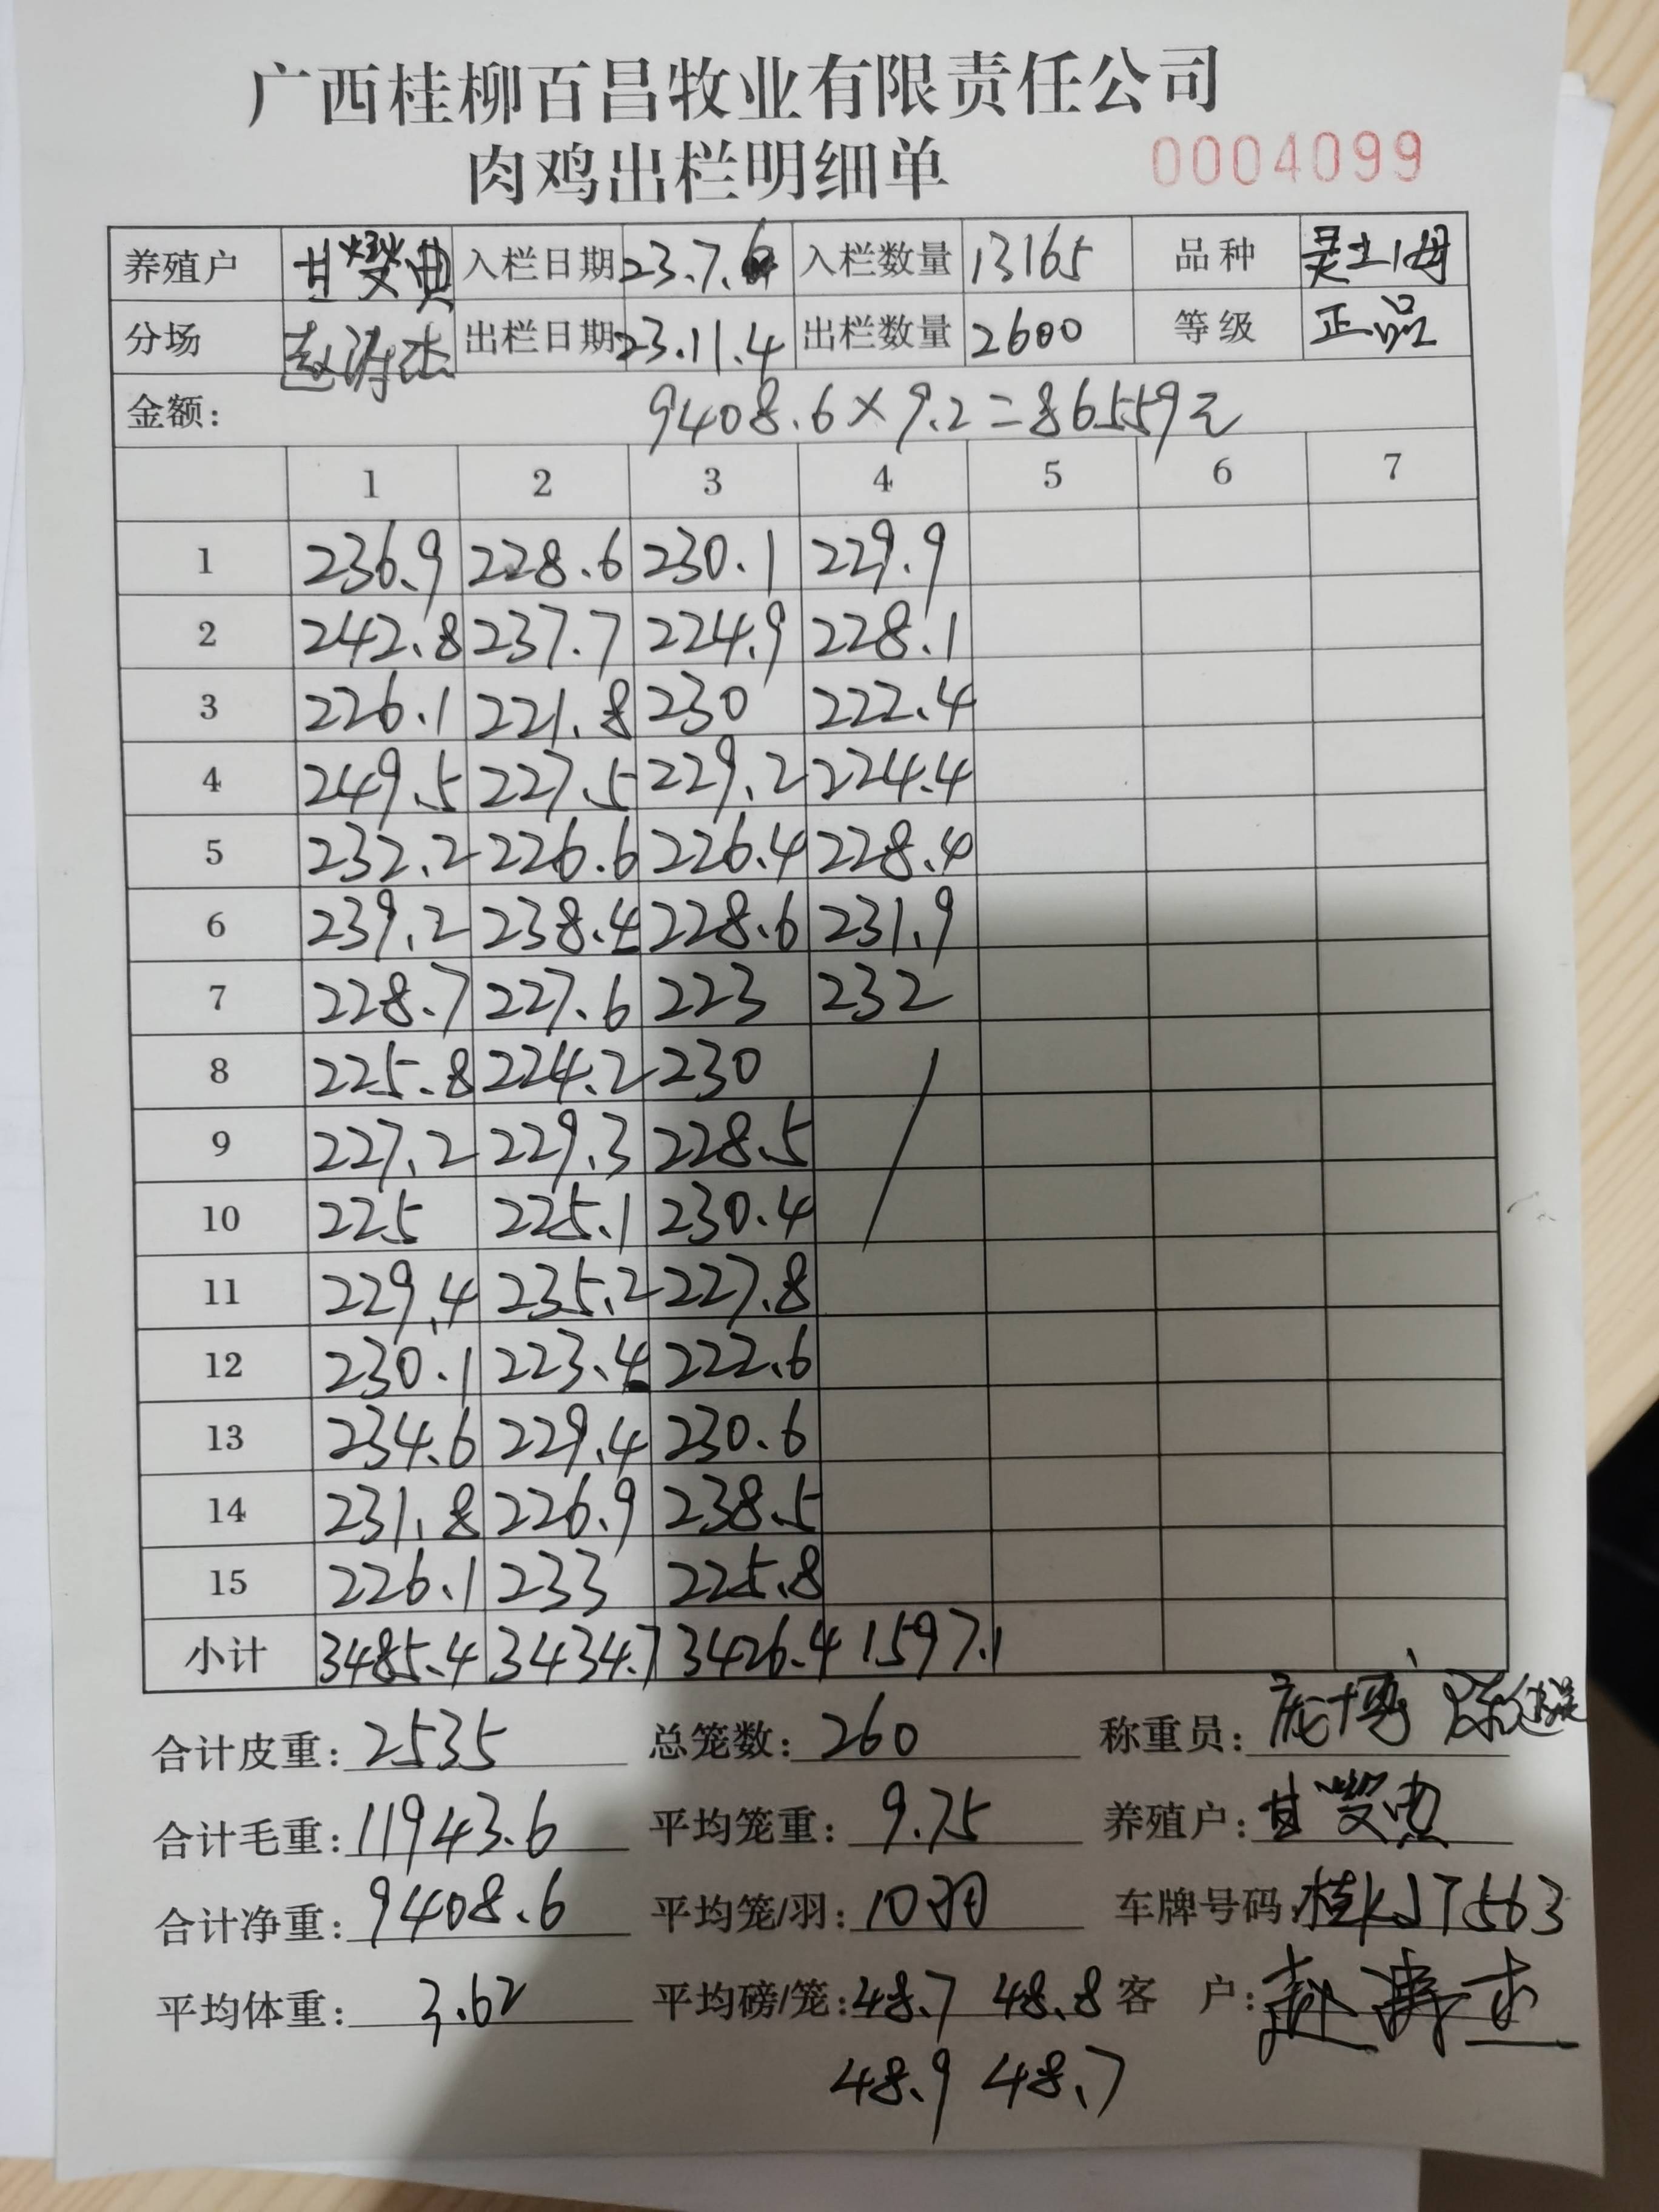 广西桂柳百昌牧业有限责任公司
肉鸡出栏明细单 0004099
养殖户 甘燮典 入栏日期 23.7.6 入栏数量 13165 品种 灵土1母
分场 赵涛杰 出栏日期 23.11.4 出栏数量 2600 等级 正品
金额: 9408.6×9.2=86559元
1 2 3 4 5 6 7
1 236.9 228.6 230.1 229.9
2 242.8 237.7 224.9 228.1
3 226.1 221.8 230 222.4
4 249.5 227.5 229.2 224.4
5 232.2 226.6 226.4 228.4
6 239.2 238.4 228.6 231.9
7 228.7 227.6 223 232
8 225.8 224.2 230
9 227.2 229.3 228.5
10 225 225.1 230.4
11 229.4 235.2 227.8
12 230.1 223.4 222.6
13 234.6 229.4 230.6
14 231.8 226.9 238.5
15 226.1 233 225.8
小计 3485.4 3434.7 3426.4 1597.1
合计皮重: 2535 总笼数: 260 称重员: 庞博
合计毛重: 11943.6 平均笼重: 9.75 养殖户: 甘燮典
合计净重: 9408.6 平均笼/羽: 10羽 车牌号码: 桂KJT563
平均体重: 3.62 平均磅/笼: 48.7 48.8 客 户: 赵涛杰
48.9 48.7